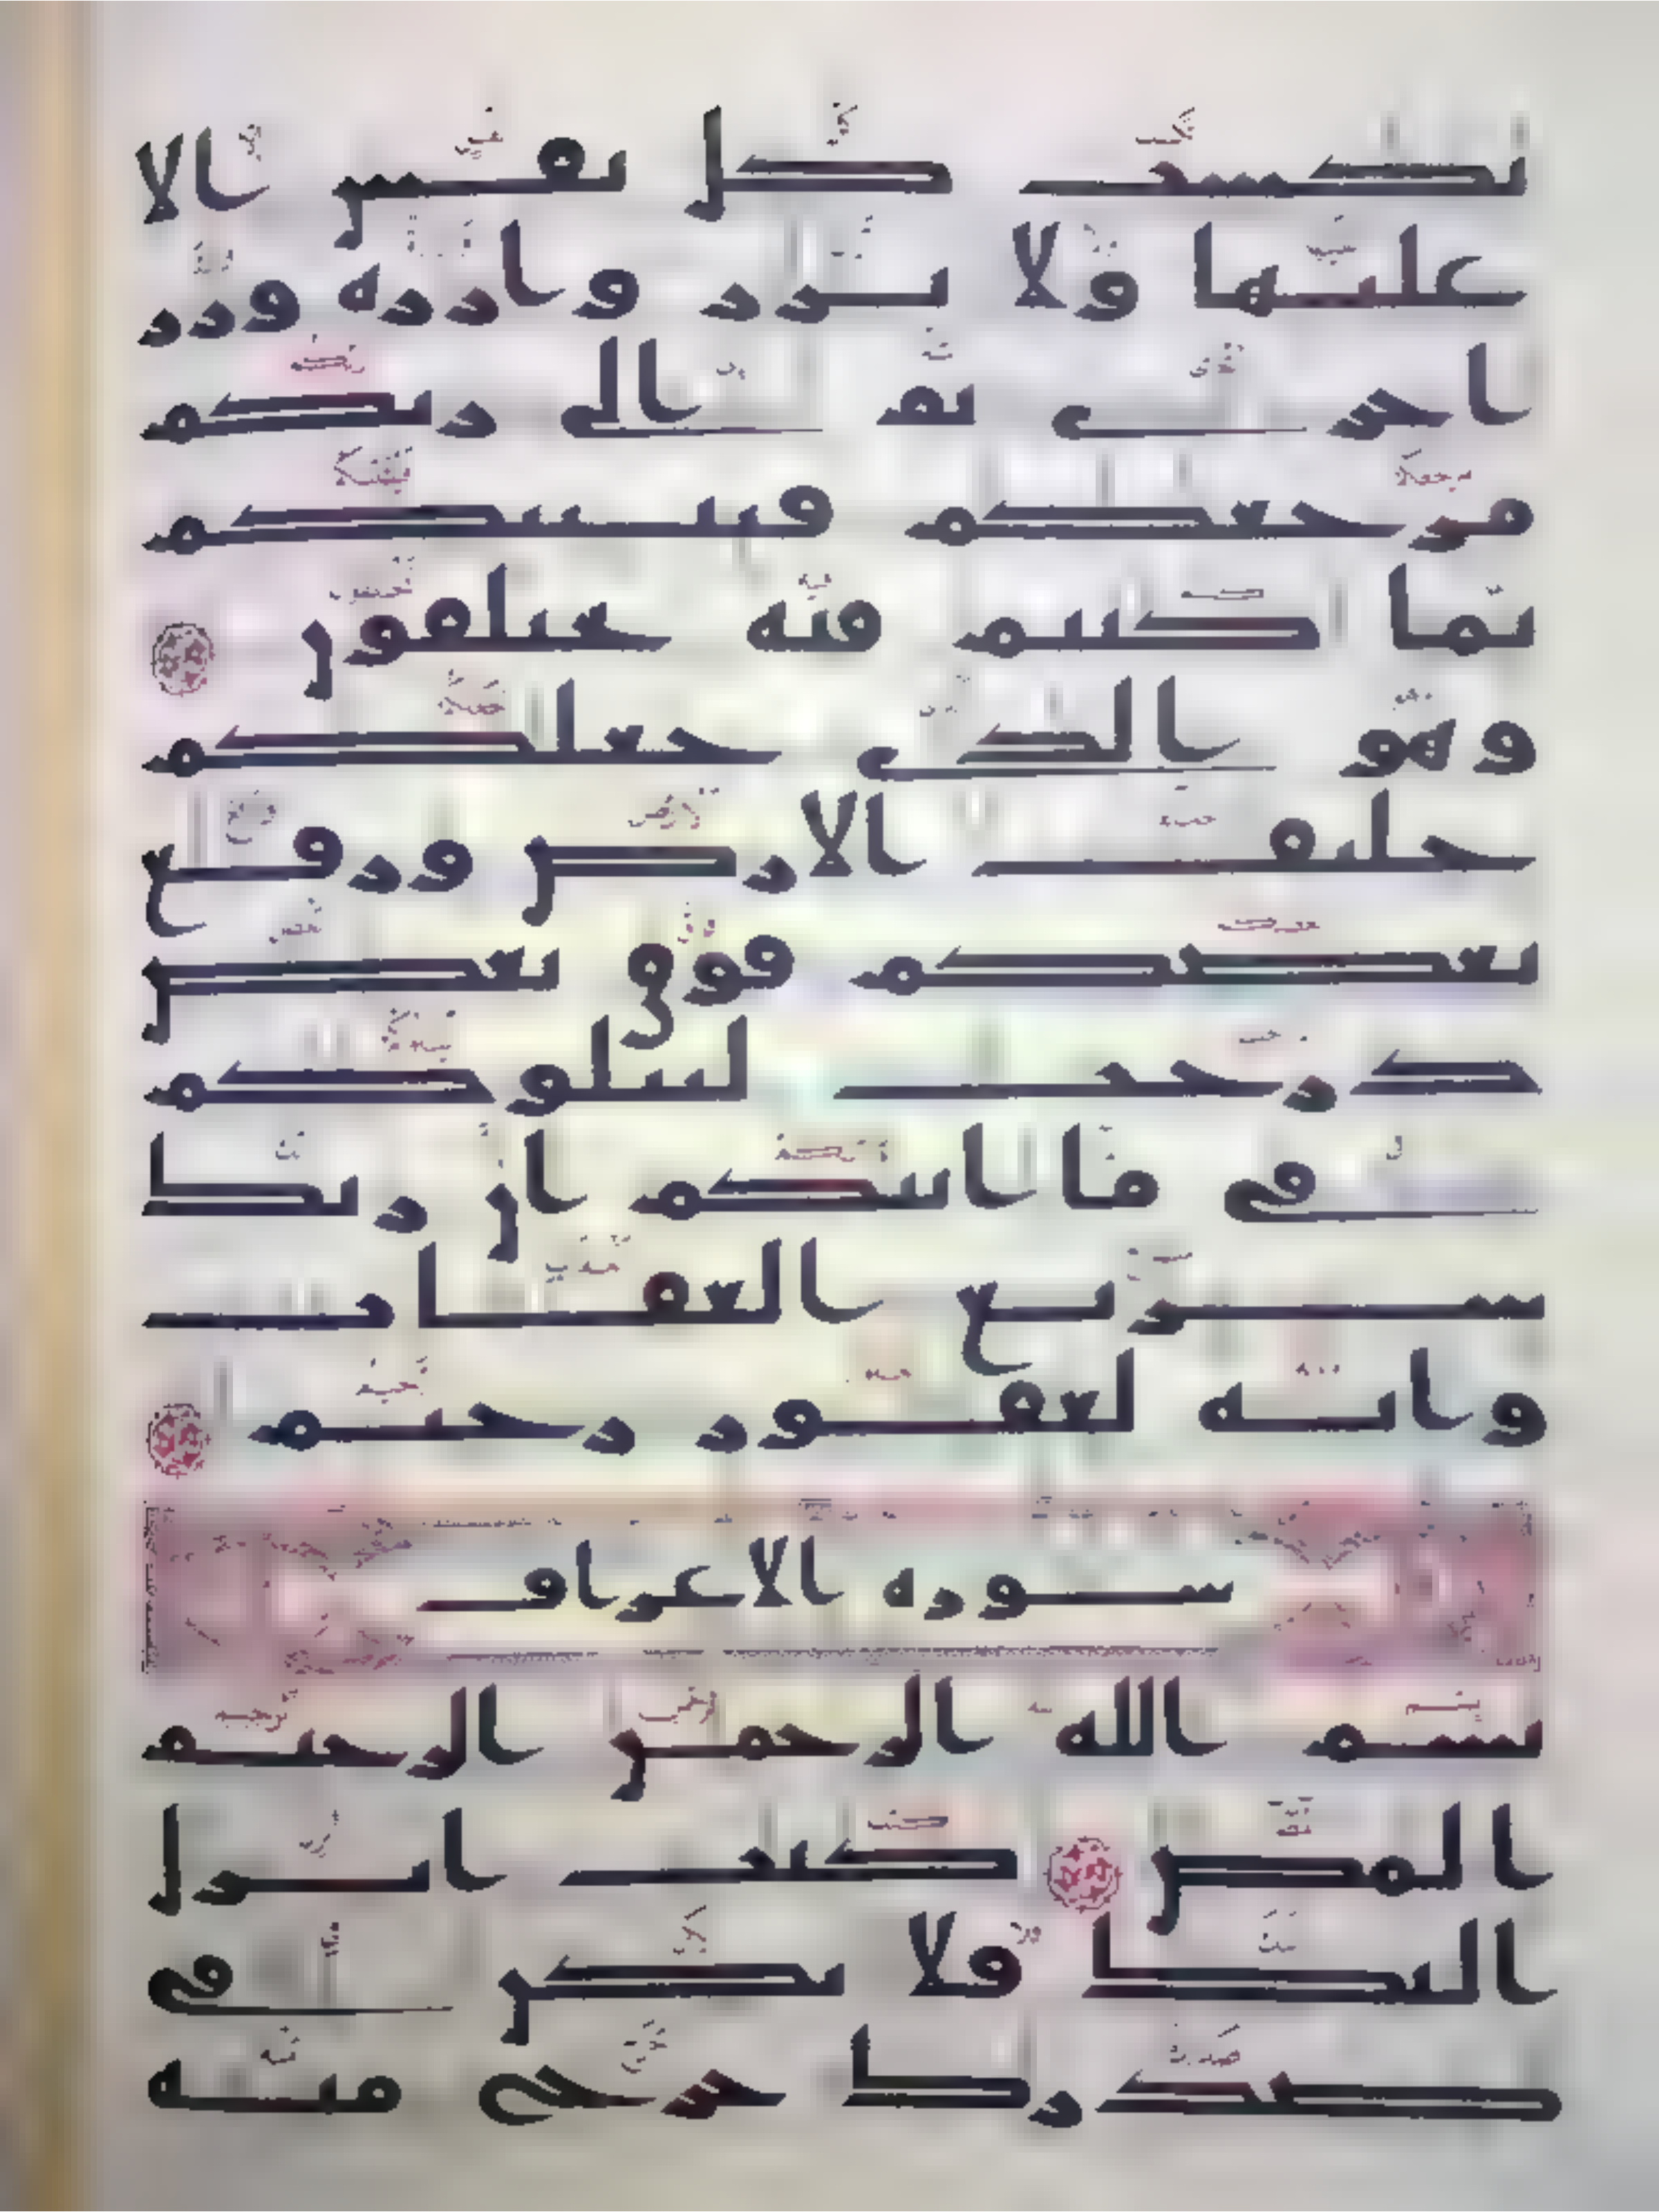 تكسب كل نفس الا
عليها ولا تزر وازرة وزر
اخرى ثم الى ربكم
مرجعكم فينبئكم
بما كنتم فيه تختلفون
وهو الذي جعلكم
خلئف الارض ورفع
بعضكم فوق بعض
درجت ليبلوكم
في ما اتىكم ان ربك
سريع العقاب
وانه لغفور رحيم
سورة الاعراف
بسم الله الرحمن الرحيم
المص كتب انزل
اليك فلا يكن في
صدرك حرج منه